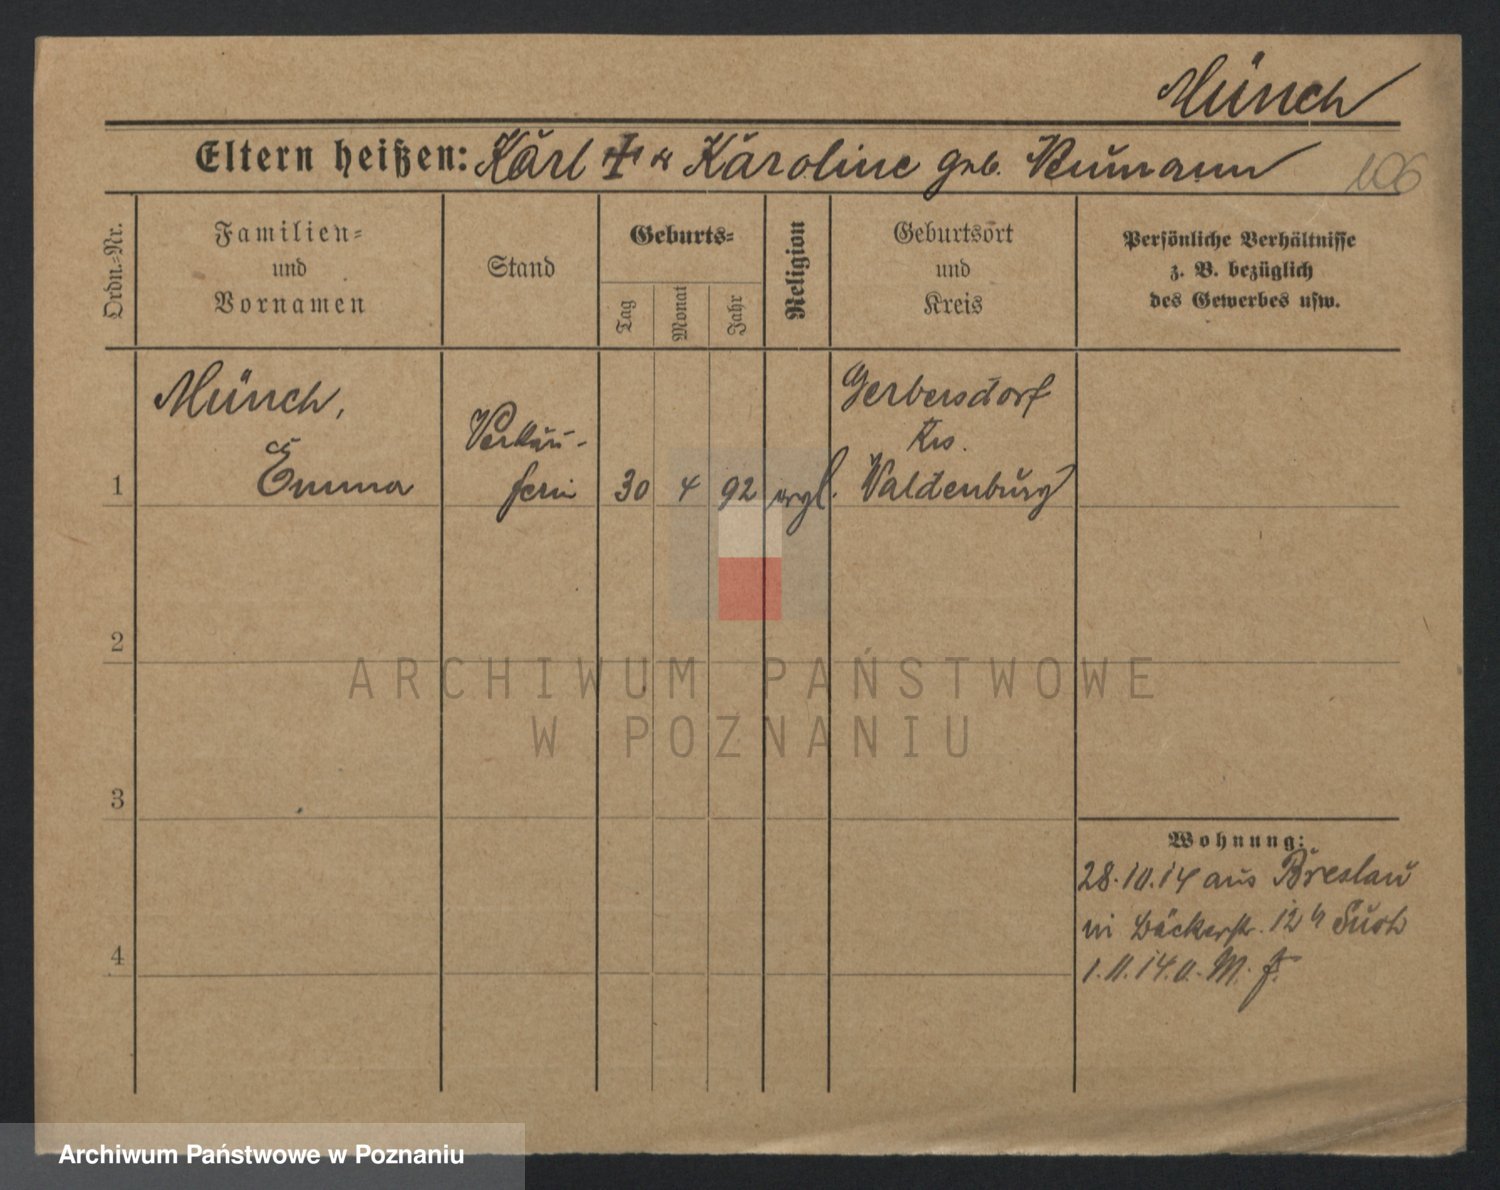 Münch
Eltern heißen: Karl † u Karoline geb. Neumann
106
Ordn.-Nr.
Familien-
und
Vornamen
Stand
Geburts-
Tag
Monat
Jahr
Religion
Geburtsort
und
Kreis
Persönliche Verhältnisse
z. B. bezüglich
des Gewerbes usw.
1
Münch,
Emma
Verkäu-
ferin
30 4 92 evgl.
Gerbersdorf
Krs.
Waldenburg
2
ARCHIWUM PAŃSTWOWE
W POZNANIU
3
4
Wohnung:
28.10.14 aus Breslau
in Bäckerstr. 12
1.11.14.
Archiwum Państwowe w Poznaniu